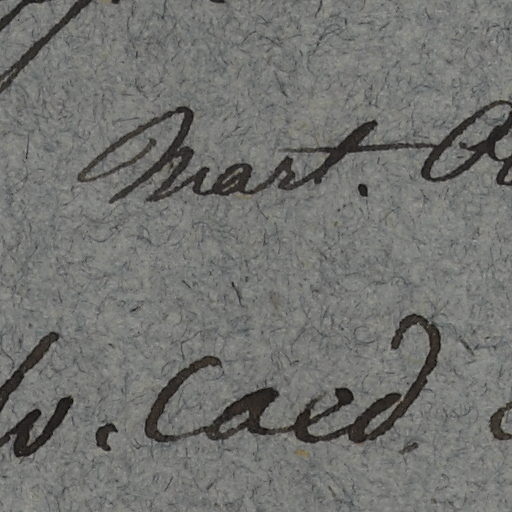 Mart.
v. Caed